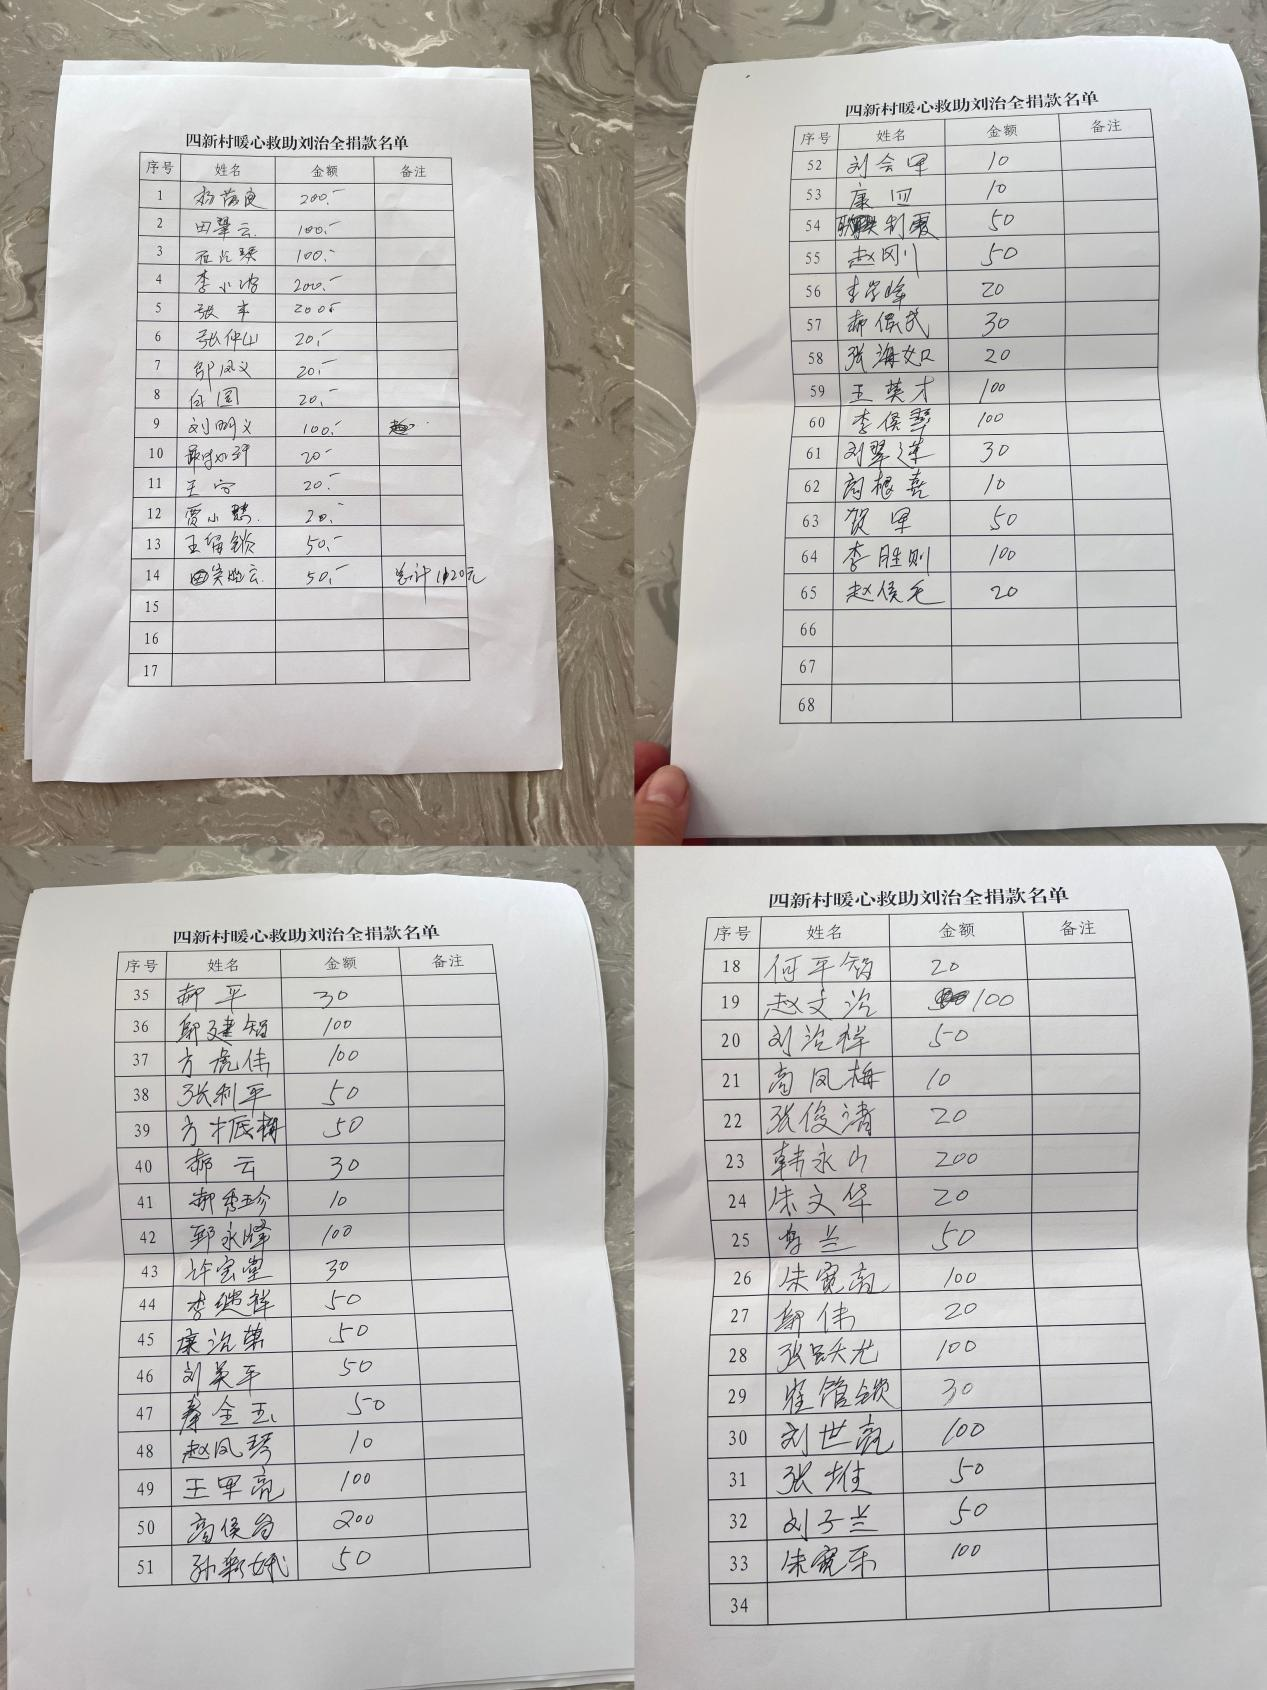 四新村暖心救助刘治全捐款名单
序号 姓名 金额 备注
1 200.-
2 田翠云 100.-
3 100.-
4 李小 200.-
5 张丰 200.-
6 张仲山 20.-
7 邬凤义 20.-
8 白园 20.-
9 刘明义 100.-
10 20-
11 王宁 20.-
12 贾小 20.-
13 王留锁 50.-
14 云 50.- 总计1120元
15
16
17
四新村暖心救助刘治全捐款名单
序号 姓名 金额 备注
52 刘会军 10
53 康四 10
54 利霞 50
55 赵刚 50
56 李峰 20
57 郝保成 30
58 张海如 20
59 王英才 100
60 李侯翠 100
61 刘翠连 30
62 高根喜 10
63 贺军 50
64 李胜则 100
65 赵侯毛 20
66
67
68
四新村暖心救助刘治全捐款名单
序号 姓名 金额 备注
35 郝平 30
36 邬建智 100
37 方虎伟 100
38 张利平 50
39 方 梅 50
40 郝云 30
41 郝秀珍 10
42 郭永峰 100
43 许宝堂 30
44 李继祥 50
45 康治荣 50
46 刘英平 50
47 秦全玉 50
48 赵凤琴 10
49 王军亮 100
50 高侯台 200
51 孙新娥 50
四新村暖心救助刘治全捐款名单
序号 姓名 金额 备注
18 何平智 20
19 赵文治 100
20 刘治祥 50
21 高凤梅 10
22 张俊清 20
23 韩永山 200
24 朱文华 20
25 兰 50
26 朱宽亮 100
27 邬伟 20
28 张跃龙 100
29 崔管锁 30
30 刘世亮 100
31 张堆 50
32 刘子兰 50
33 朱宽乐 100
34